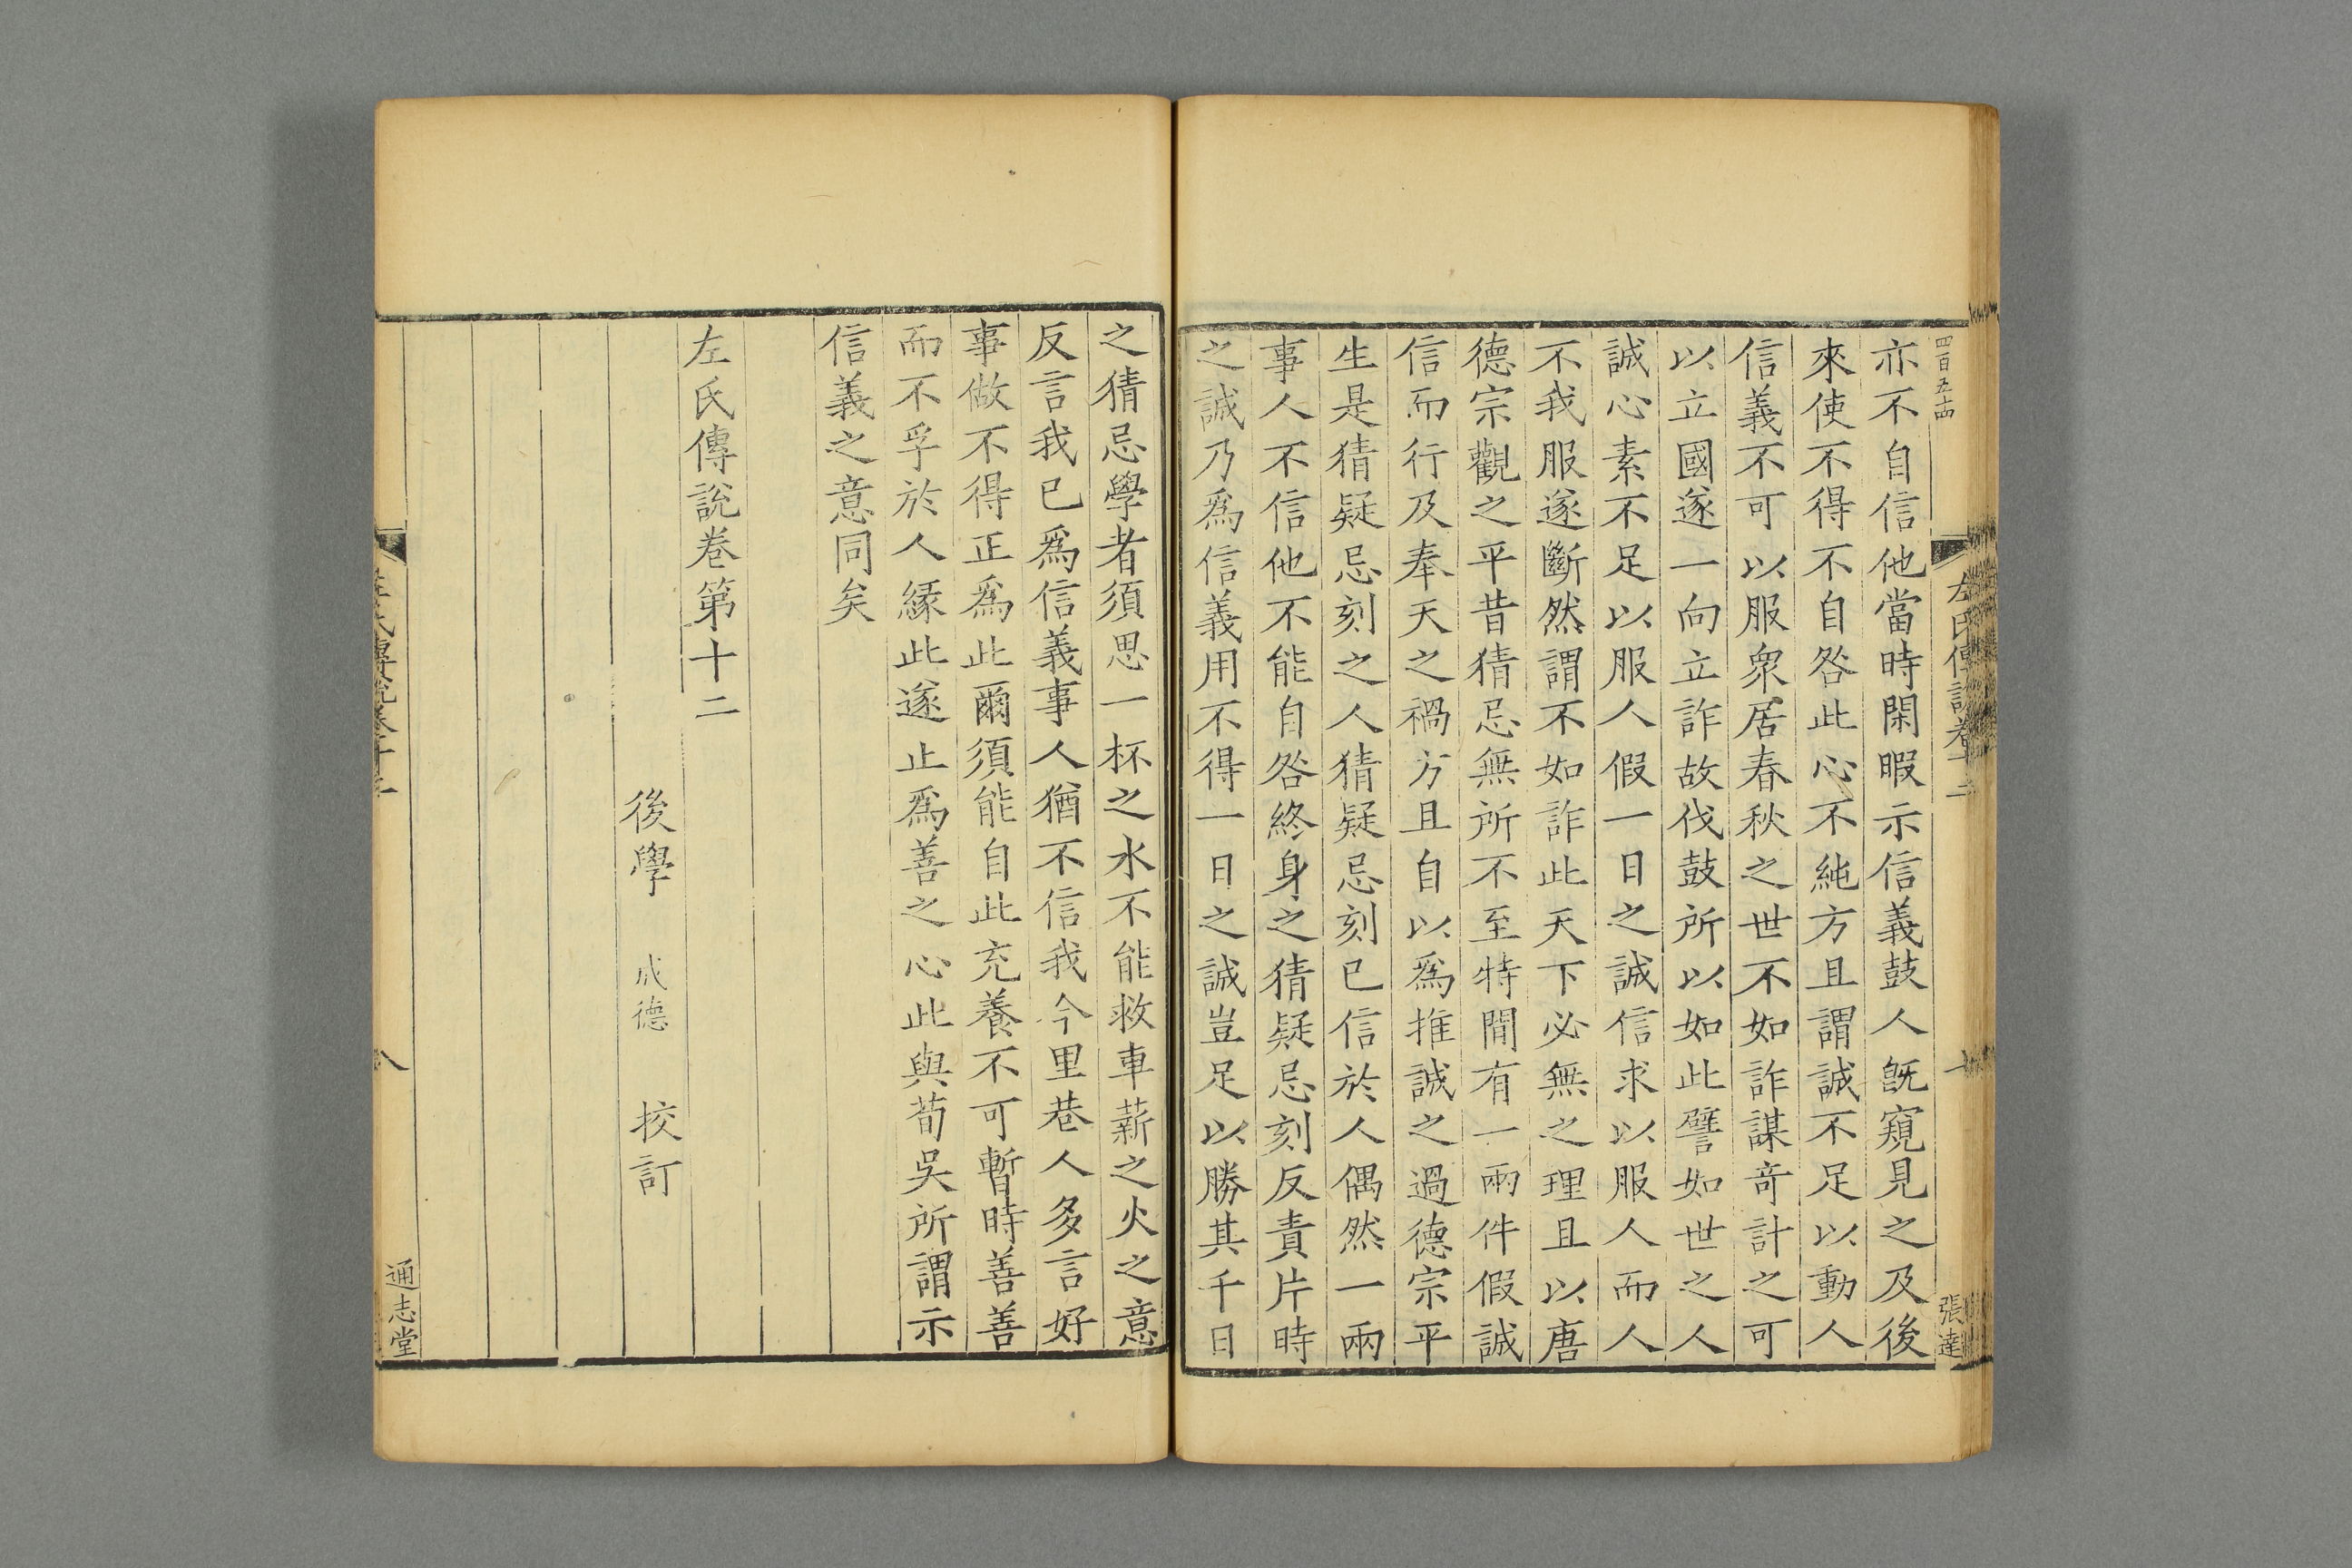 四百五十四
左氏傳說卷十二
張達
亦不自信他當時閑暇示信義鼓人旣窺見之及後
來使不得不自咎此心不純方且謂誠不足以動人
信義不可以服衆居春秋之世不如詐謀奇計之可
以立國遂一向立詐故伐鼓所以如此譬如世之人
誠心素不足以服人假一日之誠信求以服人而人
不我服遂斷然謂不如詐此天下必無之理且以唐
德宗觀之平昔猜忌無所不至特間有一兩件假誠
信而行及奉天之禍方且自以爲推誠之過德宗平
生是猜疑忌刻之人猜疑忌刻已信於人偶然一兩
事人不信他不能自咎終身之猜疑忌刻反責片時
之誠乃爲信義用不得一日之誠豈足以勝其千日
之猜忌學者須思一杯之水不能救車薪之火之意
反言我已爲信義事人猶不信我今里巷人多言好
事做不得正爲此爾須能自此充養不可暫時善善
而不孚於人緣此遂止爲善之心此與荀吳所謂示
信義之意同矣
左氏傳說卷第十二
後學 成德 校訂
左氏傳說卷十二
八
通志堂